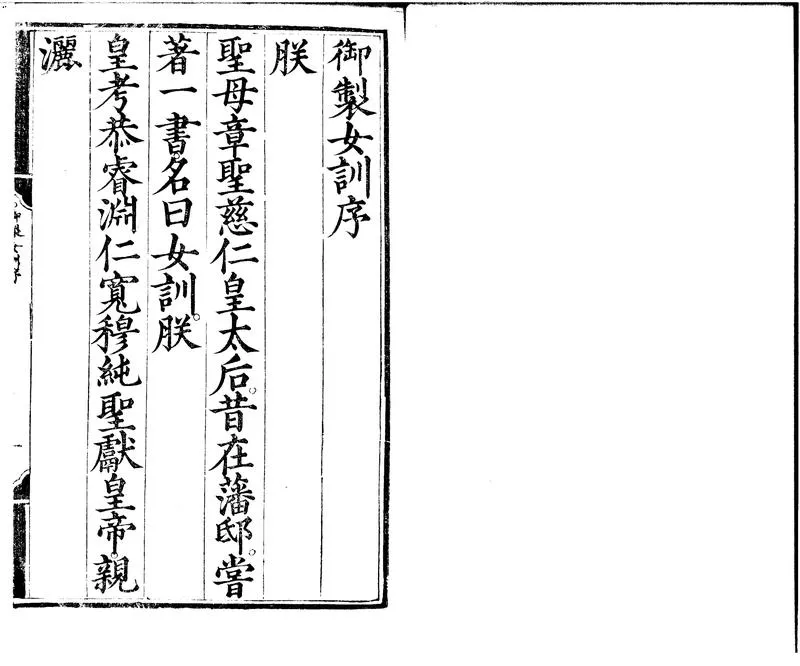 御製女訓序
朕
聖母章聖慈仁皇太后。昔在藩邸。嘗
著一書。名曰女訓。朕
皇考恭睿淵仁寬穆純聖獻皇帝。親
灑
御製女訓序
一